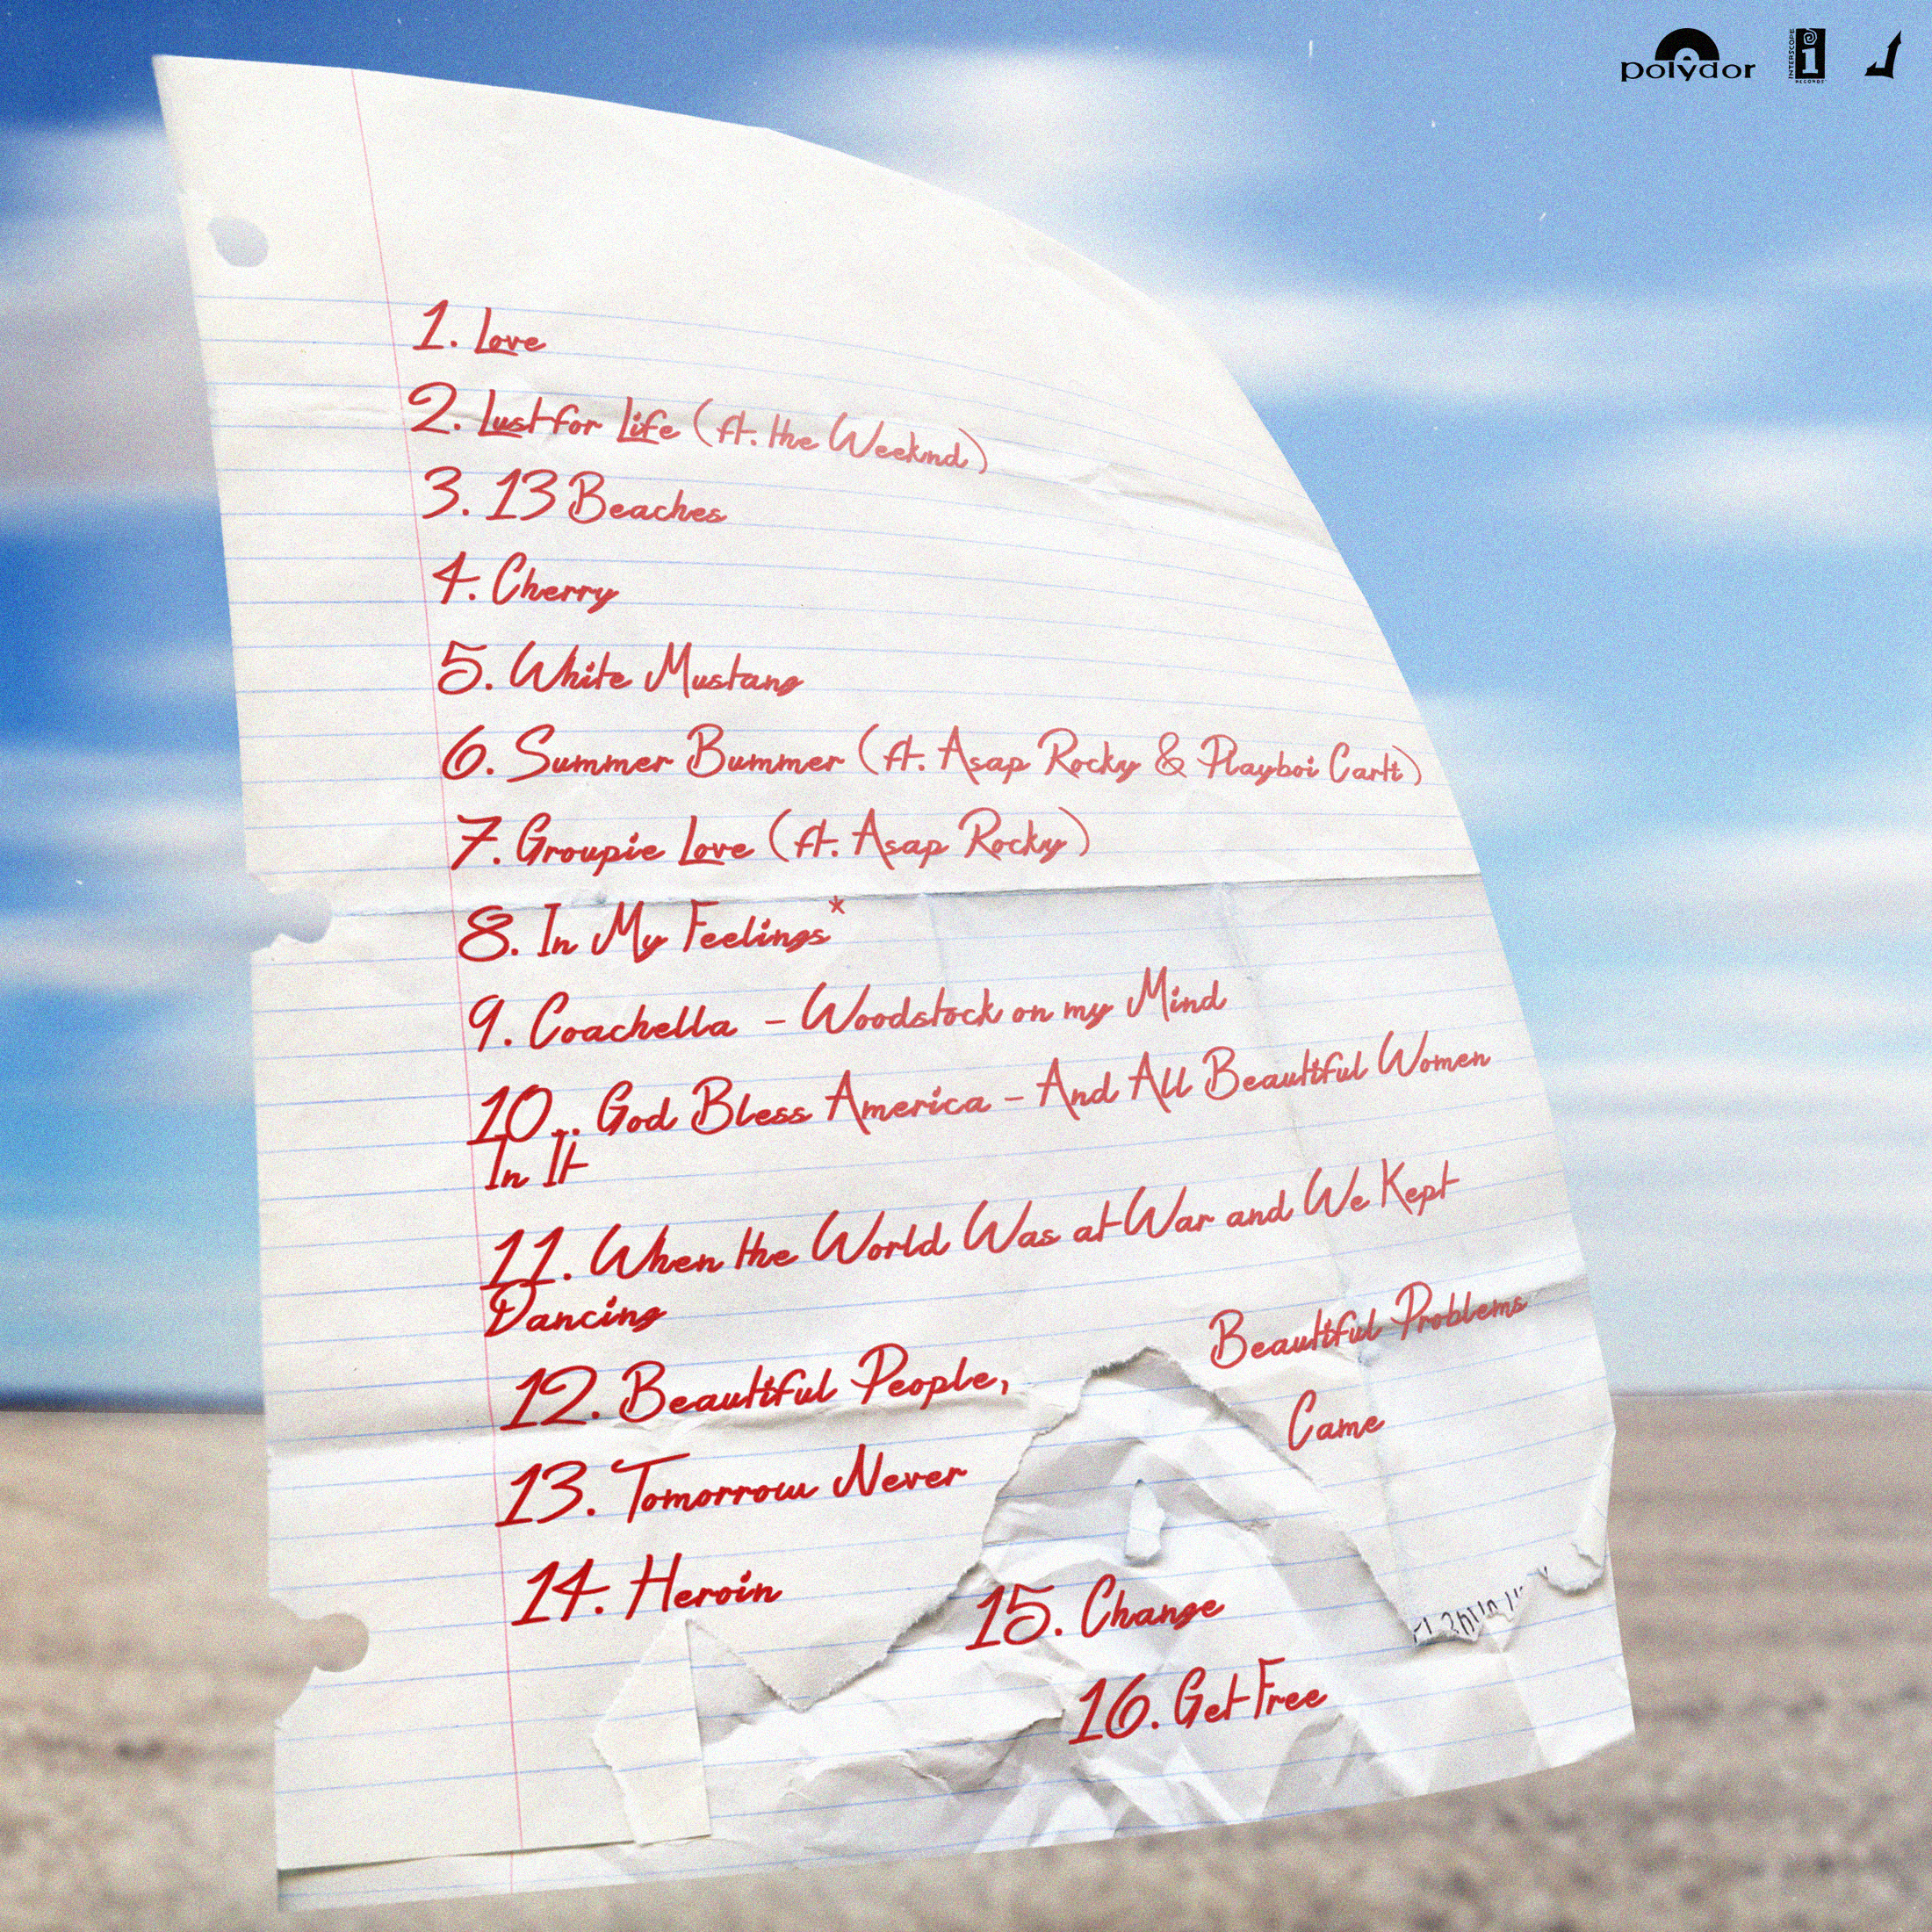 polydor
INTERSCOPE
RECORDS
1. Love
2. Lust for Life (ft. the Weeknd)
3. 13 Beaches
4. Cherry
5. White Mustang
6. Summer Bummer (ft. Asap Rocky & Playboi Carti)
7. Groupie Love (ft. Asap Rocky)
8. In My Feelings*
9. Coachella - Woodstock on my Mind
10.. God Bless America - And All Beautiful Women
In It
11. When the World Was at War and We Kept
Dancing
12. Beautiful People, Beautiful Problems
13. Tomorrow Never Came
14. Heroin
15. Change
16. Get Free